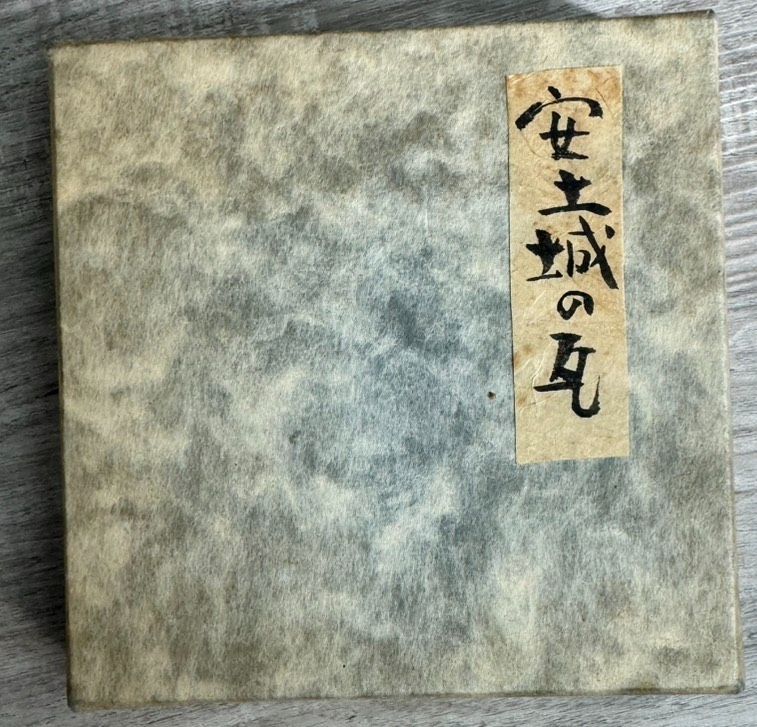 安土城の瓦